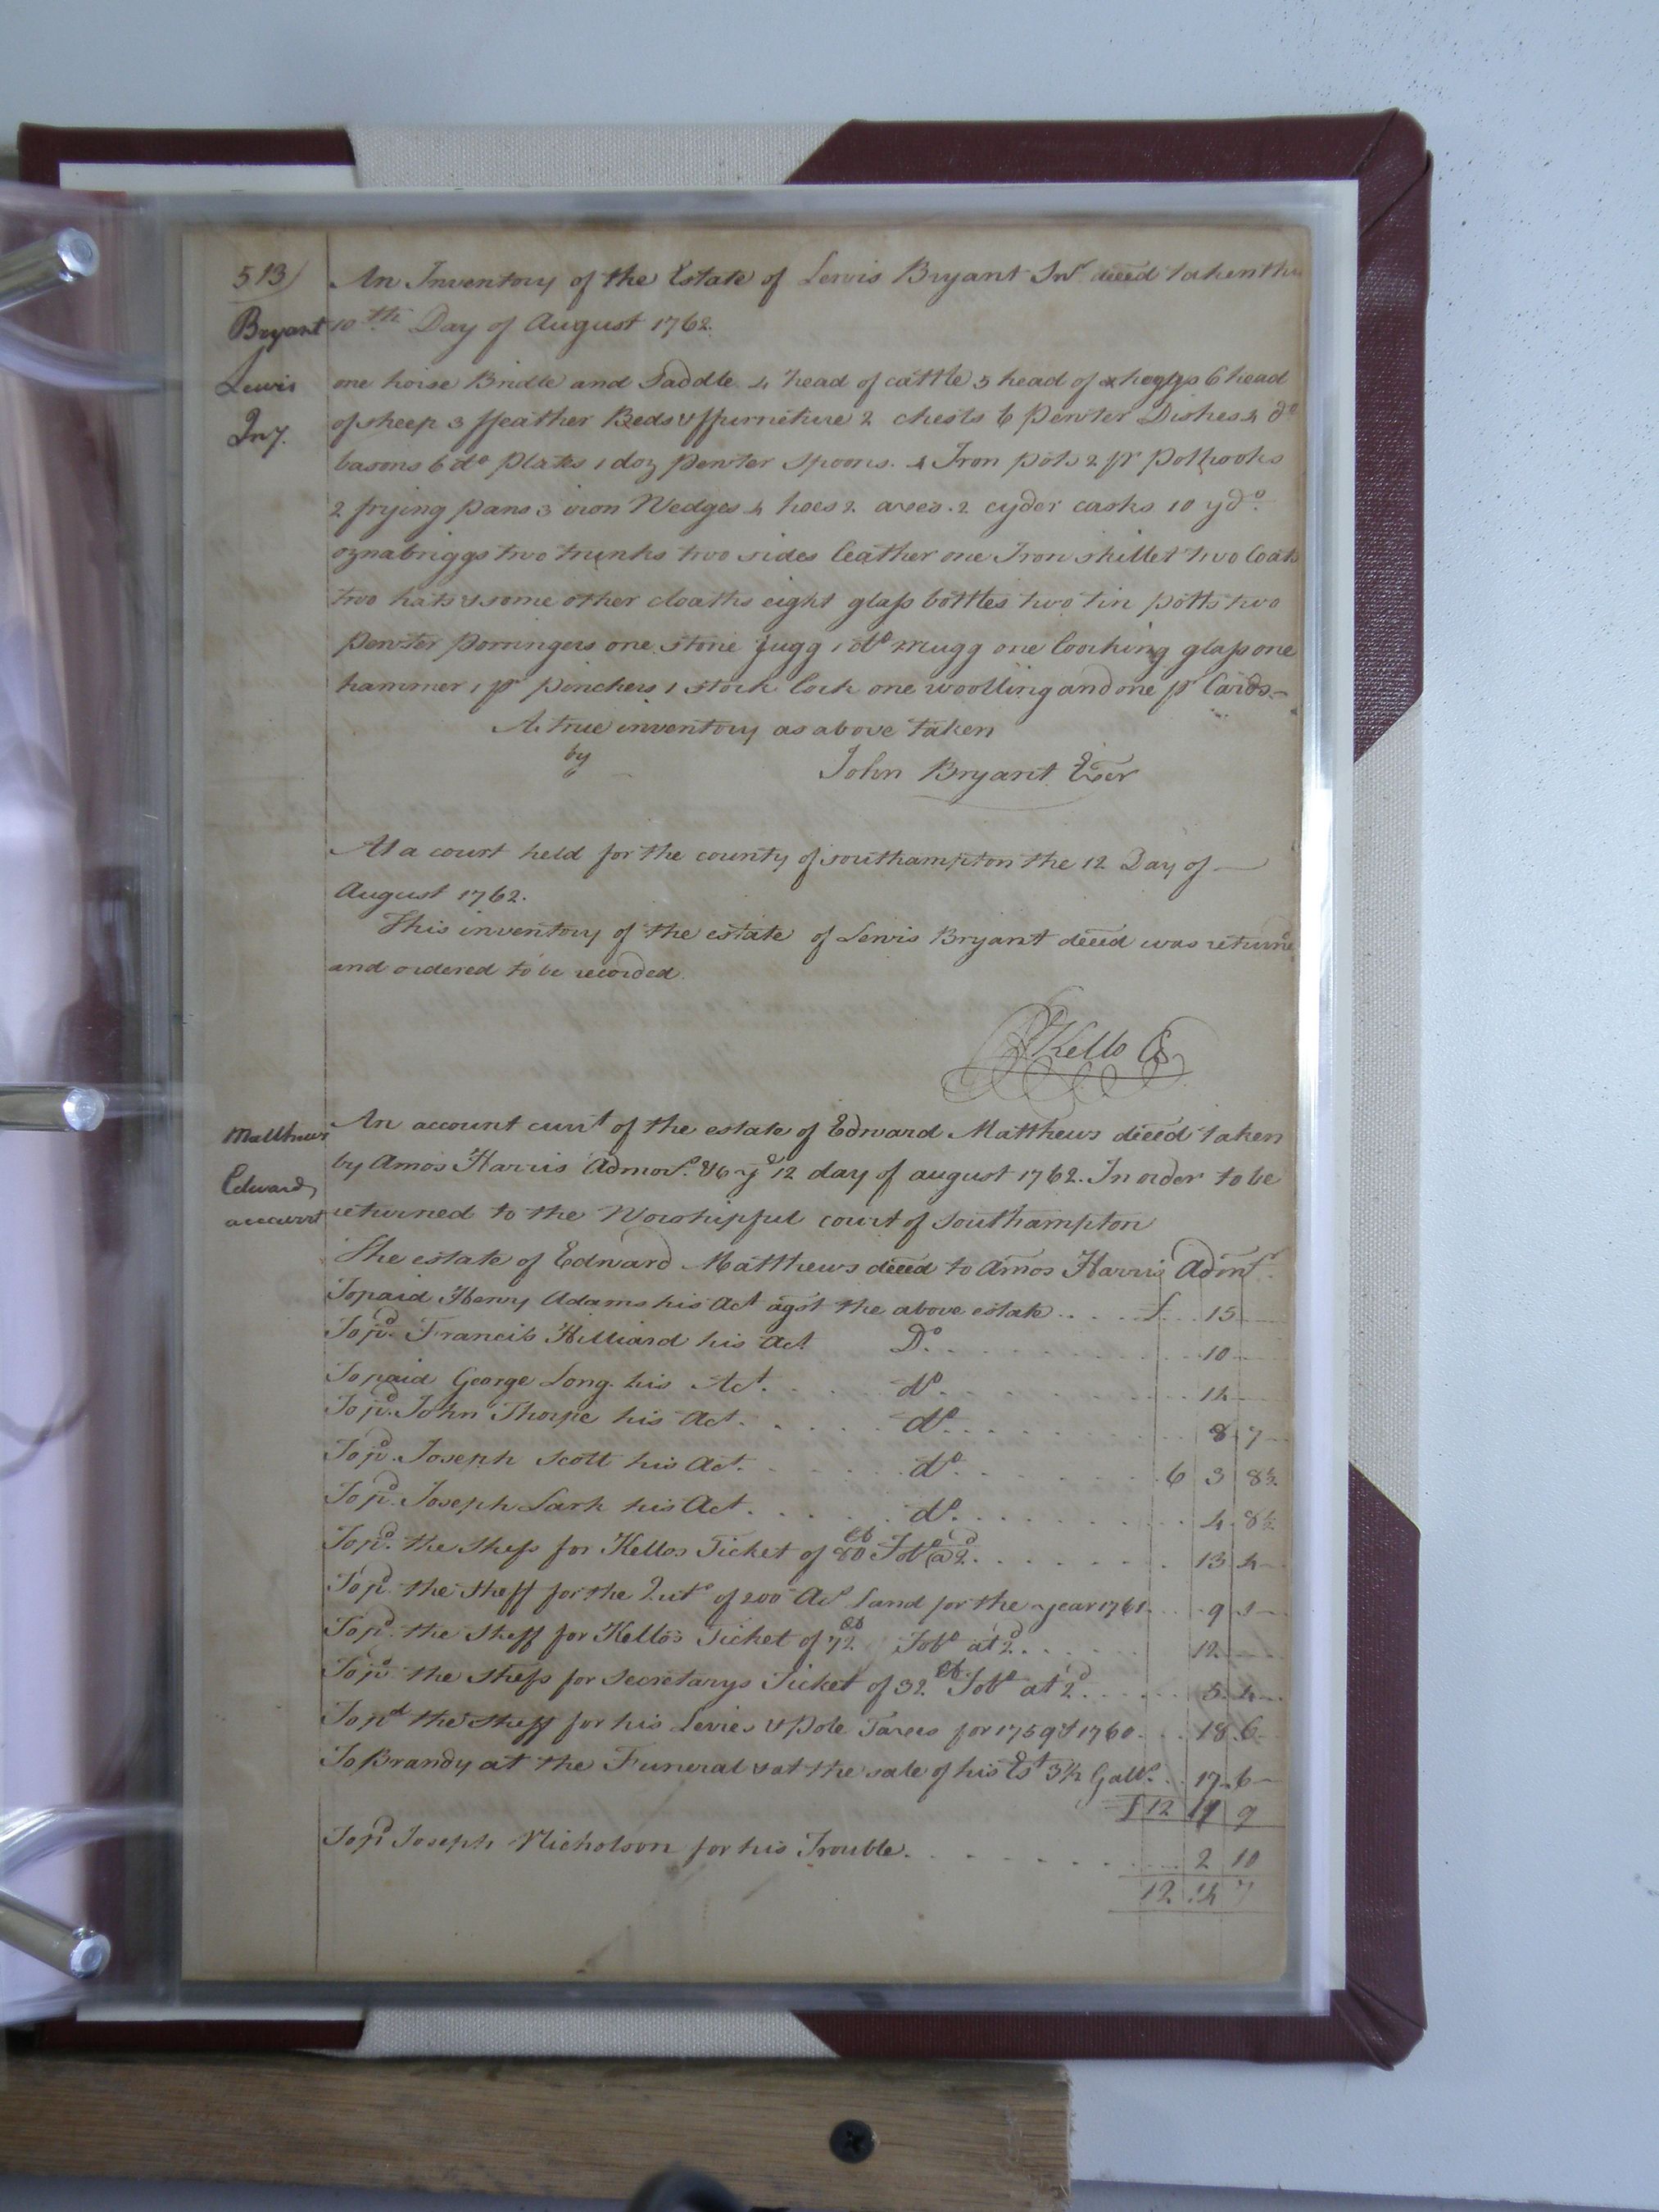 513/
An Inventory of the Estate of Lewis Bryant Junr deced taken the
Bryant
10th Day of August 1762.
Lewis
Inv.
one horse Bridle and Saddle 4 head of cattle 5 head of hoggs 6 head
of sheep 3 ffeather Beds & ffurneture 2 chests 6 Pewter Dishes 4 do
basons 6 do Plates 1 doz Pewter Spoons. 4 Iron pots 2 pr Pothooks
2 frying pans 3 iron Wedges 4 hoes 2 axes. 2 cyder casks 10 yds
oznabriggs two trunks two sides leather one Iron skillet two Coats
two hats & some other cloaths eight glass bottles two tin potts two
Pewter Porringers one stone Jugg 1 do Mugg one looking glass one
hammer 1 pr pinchers 1 stock lock one woolling and one pr Cards
A true inventory as above taken
by
John Bryant Exer
At a court held for the county of southampton the 12 Day of
August 1762.
This inventory of the estate of Lewis Bryant deced was returnd
and ordered to be recorded.
Kello Ck
Matthews
Edward
account
An account curt of the estate of Edward Matthews deced taken
by Amos Harris Admor. &c ye 12 day of august 1762. In order to be
returned to the Worshipful court of Southampton
The estate of Edward Matthews deced to Amos Harris Admr
To paid Henry Adams his Act agst the above estate £ 15
To pd. Francis Hilliard his Act Do. 10
To paid George Long his Act. do. 12
To pd. John Thorpe his Act. do. 8 7
To pd. Joseph Scott his Act. do. 6 3 8½
To pd. Joseph Lark his Act. do. 4 8½
To pd. the Sheff for Kellos Ticket of 80 lb Tobo @ 2d. 13 4
To pd. the Sheff for the Quts of 200 Acs Land for the year 1761. 9 1
To pd. the Sheff for Kellos Ticket of 72 lb Tobo at 2d. 12
To pd. the Sheff for Secretarys Ticket of 32 lb Tobo at 2d. 5 4
To pd the Sheff for his Levies & Pole Taxes for 1759 & 1760. 18 6
To Brandy at the Funeral & at the sale of his Est 3½ Galls. 17 6
£ 12 11 9
To pd Joseph Nicholson for his Trouble. 2 10
12 14 7